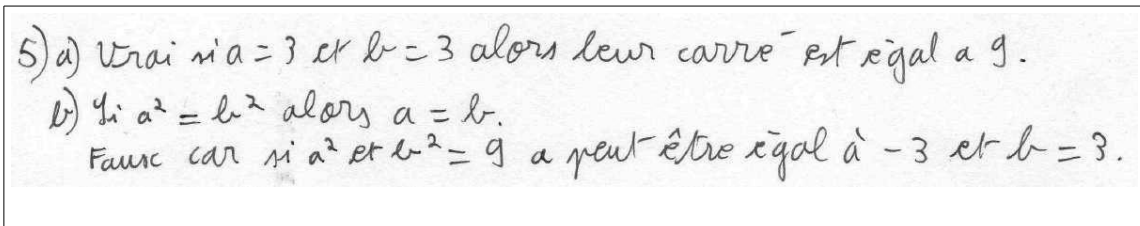 5) a) Vrai si a = 3 et b = 3 alors leur carré est égal a 9.
b) Si a² = b² alors a = b.
Faux car si a² et b² = 9 a peut être égal à -3 et b = 3.